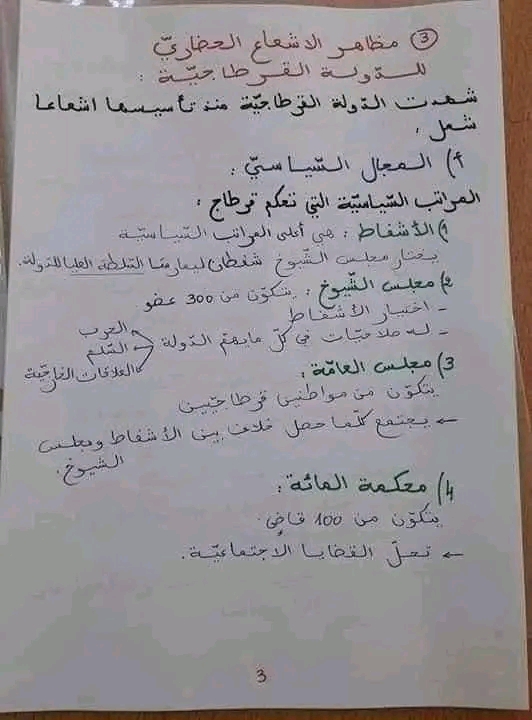 ③ مظاهر الاشعاع الحضاريّ
للدولة القرطاجيّة :
شهدت الدّولة القرطاجيّة منذ تأسيسها اشعاعا
شمل :
أ) المجال السّياسيّ :
المراتب السّياسيّة التي تحكم قرطاج :
1) الأشفاط : هي أعلى المراتب السّياسيّة
يختار مجلس الشّيوخ شفطان ليمارسا السّلطة العليا للدولة.
2) مجلس الشّيوخ : يتكوّن من 300 عضو
- اختيار الأشفاط
- له صلاحيّات في كلّ ما يهمّ الدولة
الحرب
السّلم
العلاقات الخارجيّة
3) مجلس العامّة :
يتكوّن من مواطنين قرطاجيّين
← يجتمع كلّما حصل خلاف بين الأشفاط ومجلس
الشيوخ.
4) محكمة المائة :
يتكوّن من 100 قاضٍ.
← تحلّ القضايا الاجتماعيّة.
3